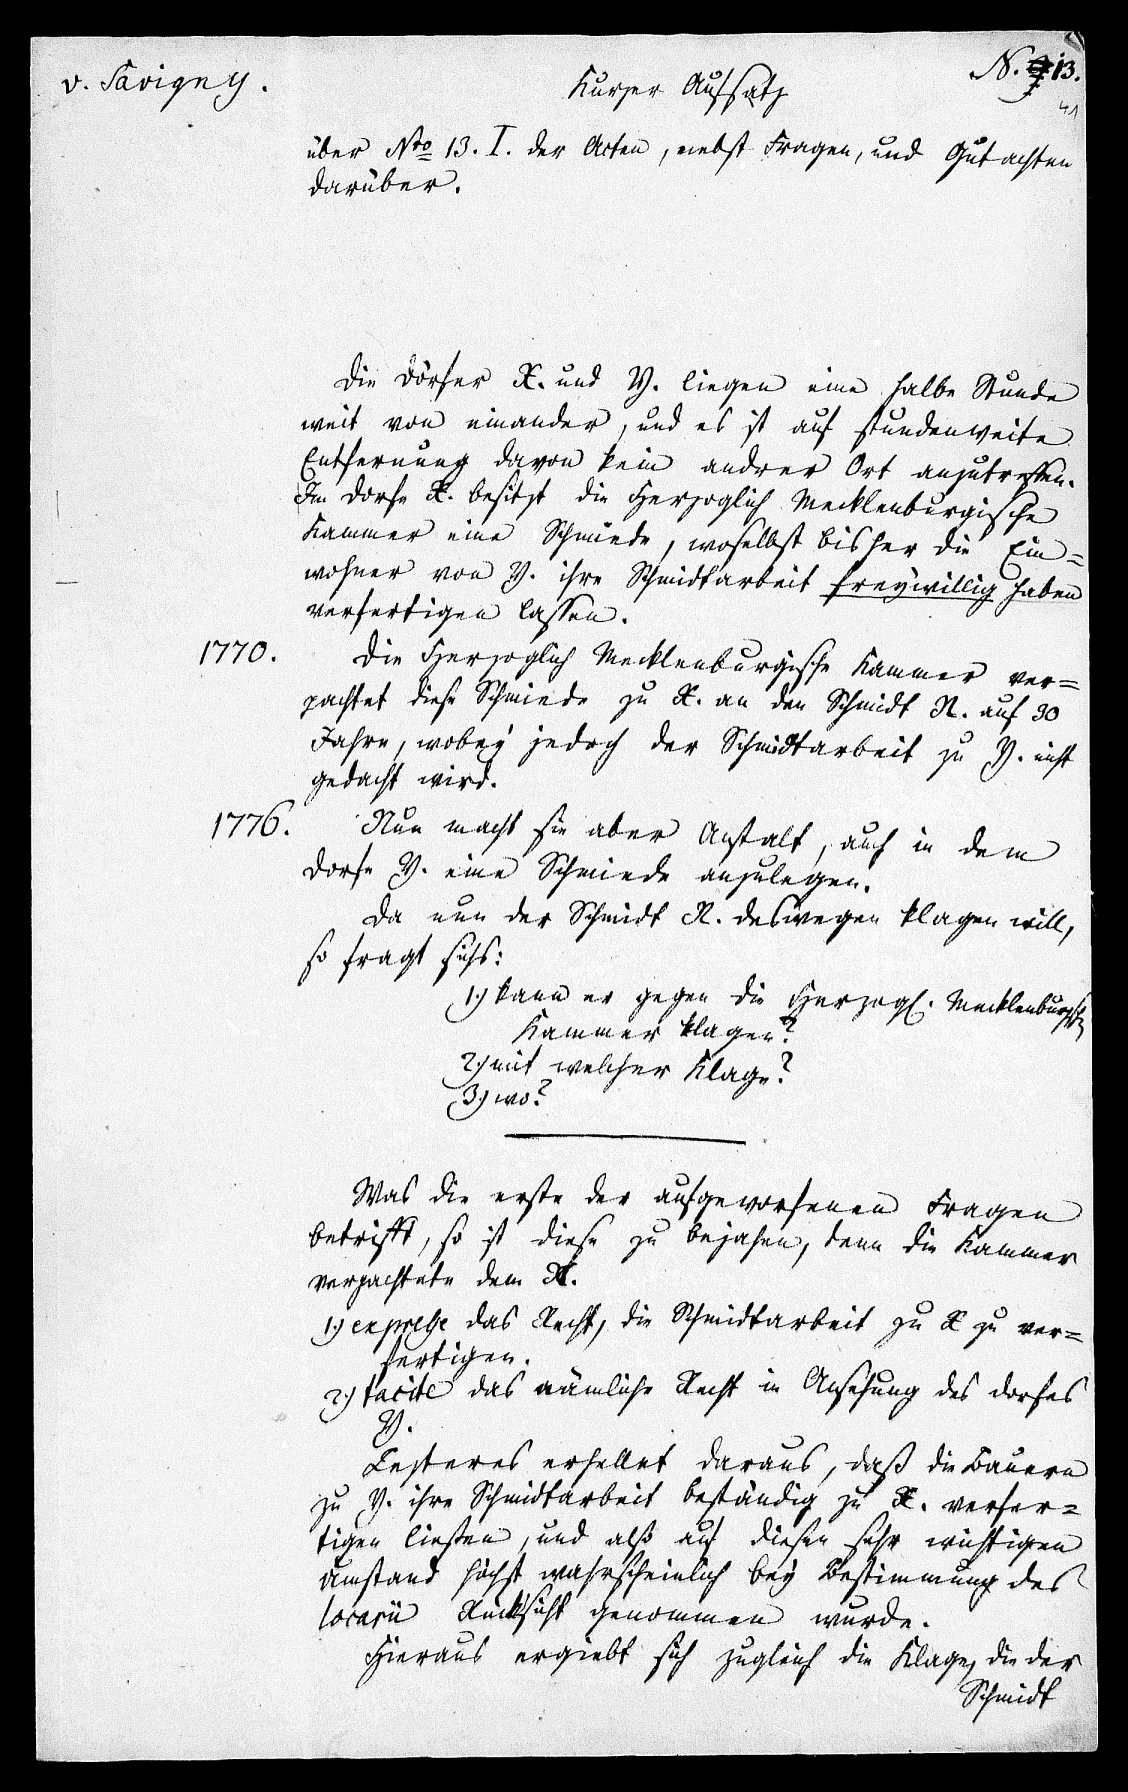 v. Savigny.
N. 13.
41
Kurzer Aufsatz
über Nro 13. I. der Acten, nebst Fragen, und Gutachten
darüber.
Die Dörfer X. und Y. liegen eine halbe Stunde
weit von einander, und es ist auf stundenweite
Entfernung davon kein andrer Ort anzutreffen.
Im Dorfe X. besitzt die Herzoglich Mecklenburgische
Kammer eine Schmiede, woselbst bisher die Ein=
wohner von Y. ihre Schmidtarbeit freywillig haben
verfertigen lassen.
1770. Die Herzoglich Mecklenburgische Kammer ver=
pachtet diese Schmiede zu X. an den Schmidt N. auf 30
Jahre, wobey jedoch der Schmidtarbeit zu Y. nicht
gedacht wird.
1776. Nun macht sie aber Anstalt, auch in dem
Dorfe Y. eine Schmiede anzulegen.
Da nun der Schmidt N. deswegen klagen will,
so fragt sichs:
1.) kann er gegen die Herzogl. Mecklenburgsche
Kammer klagen?
2.) mit welcher Klage?
3.) wo?
Was die erste der aufgeworfenen Fragen
betrifft, so ist diese zu bejahen, denn die Kammer
verpachtete dem N.
1.) expresse das Recht, die Schmidtarbeit zu X zu ver=
fertigen.
2.) tacite das nämliche Recht in Ansehung des Dorfes
Y.
Lezteres erhellet daraus, daß die Bauern
zu Y. ihre Schmidtarbeit beständig zu X. verfer=
tigen ließen, und also auf diesen sehr wichtigen
Umstand höchst wahrscheinlich bey Bestimmung des
locarii Rücksicht genommen wurde.
Hieraus ergiebt sich zugleich die Klage, die der
Schmidt